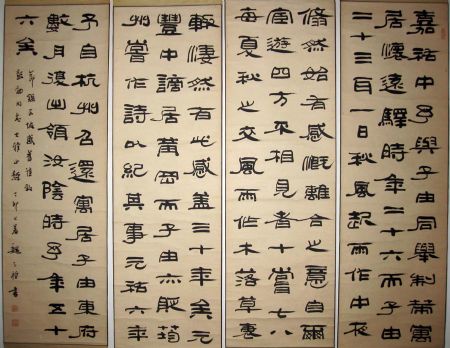 嘉祐中予與子由同舉制策寓
居懷遠驛時年二十六而子由
二十三耳一日秋風起雨作中夜
翛然始有感慨離合之意自爾
宦遊四方不相見者十嘗七八
每夏秋之交風雨作木落草衰
輒淒然有此感蓋三十年矣元
豐中謫居黃岡而子由亦貶筠
州嘗作詩以紀其事元祐六年
予自杭州召還寓居子由東府
數月復出領汝陰時予年五十
六矣
坡感舊詩
丁卯之春魏之書